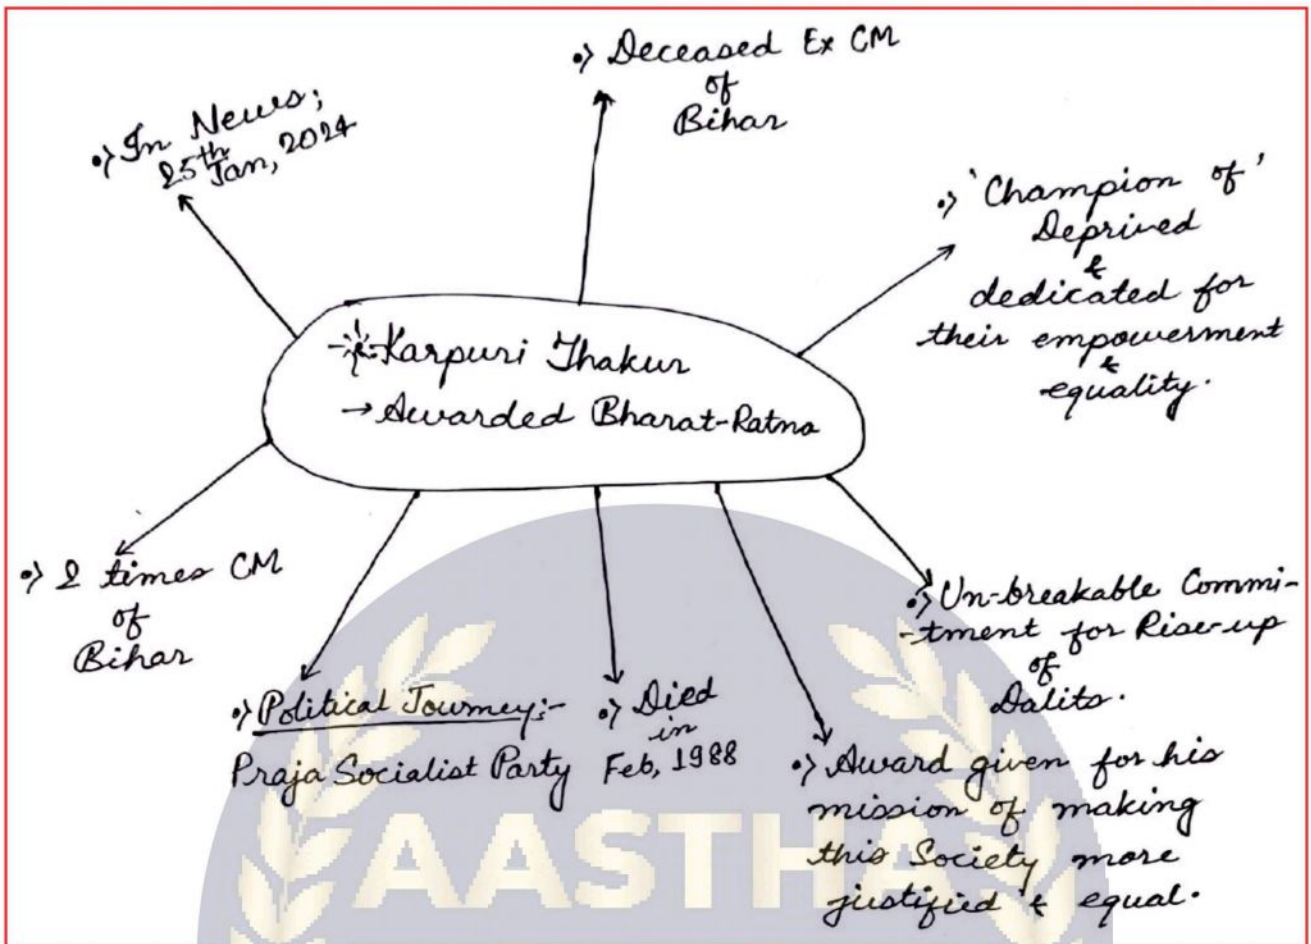 •> In News;
25th Jan, 2024
•> Deceased Ex CM
of
Bihar
•> 'Champion of'
Deprived
&
dedicated for
their empowerment
&
equality.
Karpuri Thakur
→ Awarded Bharat-Ratna
•> 2 times CM
of
Bihar
•> Political Journey:-
Praja Socialist Party
•> Died
in
Feb, 1988
•> Un-breakable Commi-
-tment for Rise-up
of
Dalits.
•> Award given for his
mission of making
this Society more
justified & equal.
AASTHA